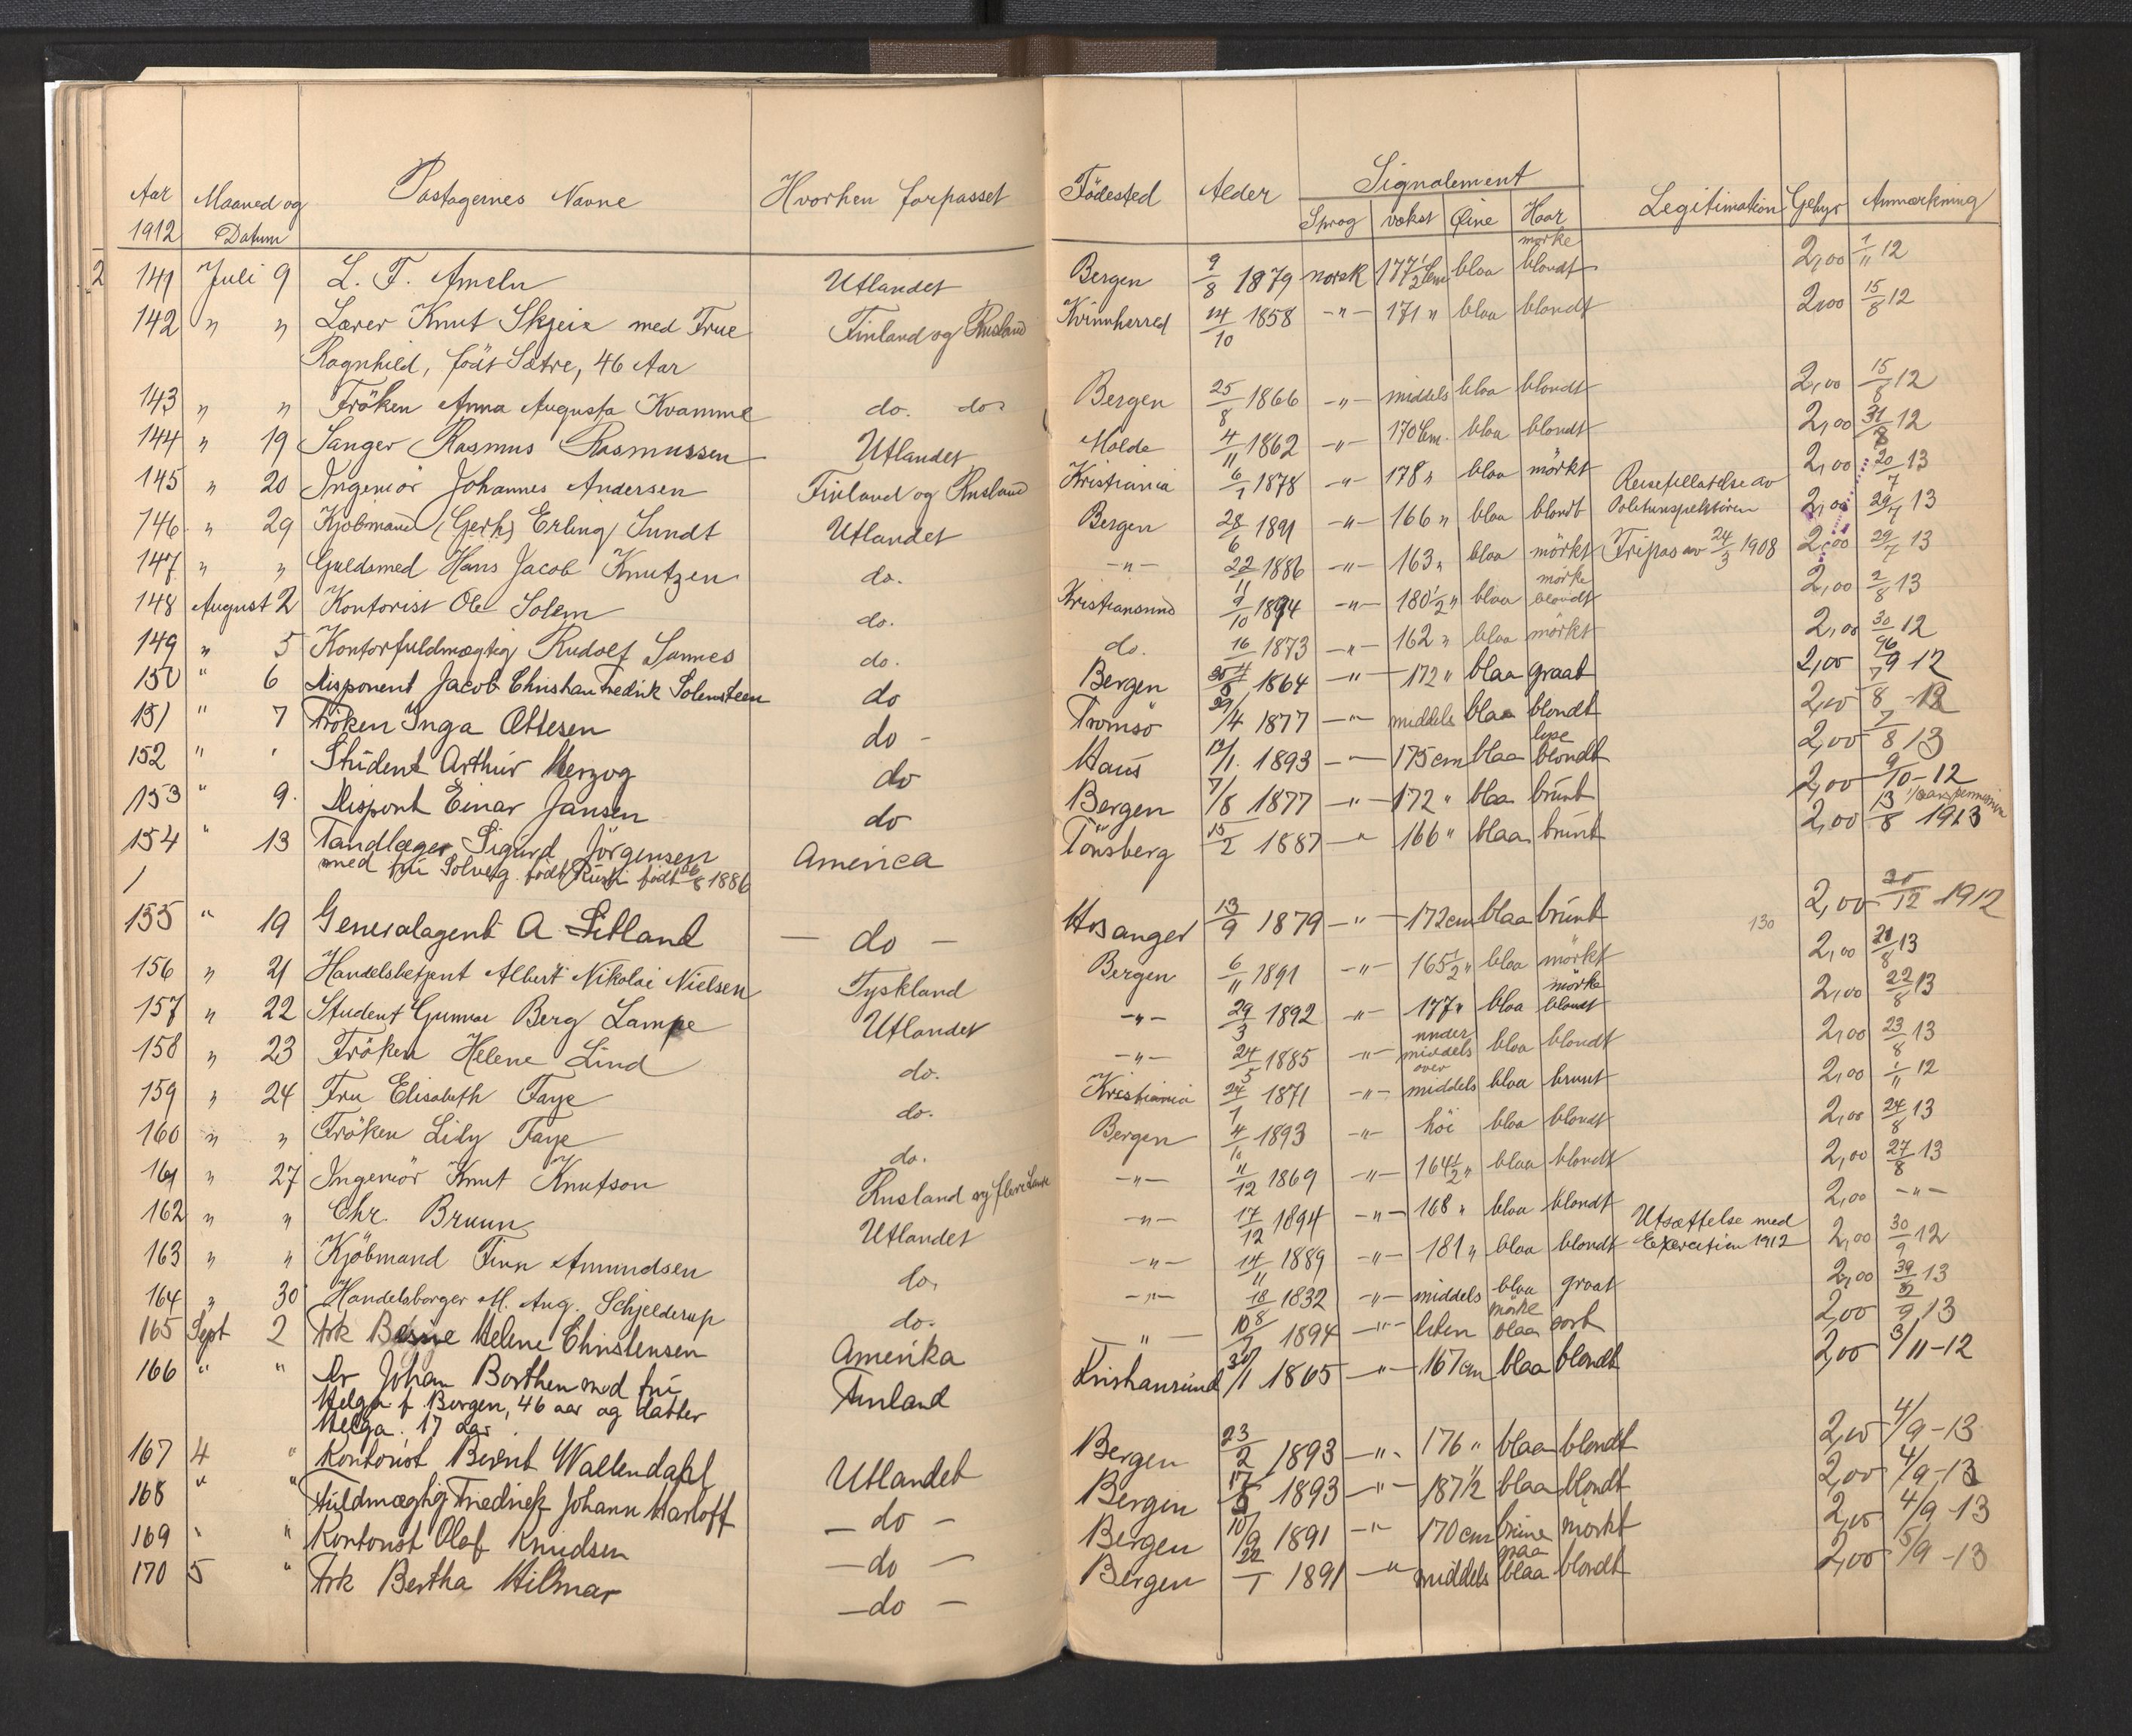 Aar 1912 Maaned og Datum Pastagernes Navne Hvorhen forpasset Födested Alder Signalement Legitimation Gebyr Anmærkning
Sprog vokst Øine Haar
2 141 Juli 9 L. F. Ameln Utlandet Bergen 9/8 1879 norsk 177 1/2 Cm blaa mörke blondt 2,00 1/11 12
142 " " Lærer Knut Skjeie med Frue Finland og Rusland Kvinnherred 14/10 1858 -"- 171 " blaa blondt 2,00 15/8 12
Ragnhild, födt Sætre, 46 Aar
143 " " Fröken Anna Augusta Kvamme do. do. Bergen 25/8 1866 -"- middels blaa blondt 2,00 15/8 12
144 " 19 Sanger Rasmus Rasmussen Utlandet Molde 4/11 1862 -"- 170 Cm. blaa blondt 2,00 31/8 12
145 " 20 Ingeniör Johannes Andersen Finland og Rusland Kristiania 6/1 1878 -"- 178 " blaa mörkt 2,00 20/7 13
146 " 29 Kjöbmand (Gerh) Erling Sundt Utlandet Bergen 28/6 1891 -"- 166 " blaa blondt Reisetillatelse av Politiinspektören 2,00 29/7 13
147 " " Guldsmed Hans Jacob Knutzen do. -"- 22/11 1886 -"- 163 " blaa mörkt Fripas av 24/3 1908 2,00 29/7 13
148 August 2 Kontorist Ole Solem do. Kristiansund 9/10 1894 -"- 180 1/2 " blaa mörke blondt 2,00 2/8 13
149 " 5 Kontorfuldmægtig Rudolf Sannes do. do. 16 1873 -"- 162 " blaa mörkt 2,00 30 12
150 " 6 Disponent Jacob Christian Fredrik Solemsteen do Bergen 1864 -"- 172 " blaa graat 2,00 12
151 " 7 Fröken Inga Ottesen do - Tromsö 29/4 1877 -"- middels blaa blondt 2,00 8 -12
152 " " Student Arthur Herzog do Haus 12/1. 1893 -"- 175 cm blaa lyse blondt 2,00 7/8 13
153 " 9. Dispont Einar Jansen do Bergen 7/8 1877 -"- 172 " blaa brunt 2,00 9/10-12
154 " 13 Tandlæger Sigurd Jörgensen America Tönsberg 15/2 1887 -"- 166 " blaa brunt 2,00 13/8 1913
med fru Solveig födt födt 26/8 1886
155 " 19 Generalagent A Litland — do — Hosanger 13/9 1879 -"- 172 cm blaa brunt 130 2,00 20/12 1912
156 " 21 Handelsbetjent Albert Nikolai Nielsen Tyskland Bergen 6/11 1891 -"- 165 1/2 " blaa mörkt 2,00 21/8 13
157 " 22 Student Gunnar Berg Lampe Utlandet -"- 29/3 1892 -"- 177 " blaa mörke blondt 2,00 22/8 13
158 " 23 Fröken Helene Lind do. -"- 24/5 1885 -"- under middels blaa blondt 2,00 23/8 13
159 " 24 Fru Elisabeth Faye do. Kristiania 24/7 1871 -"- over middels blaa brunt 2,00 1/11 12
160 " " Fröken Lily Faye do. Bergen 4/10 1893 -"- höi blaa blondt 2,00 24/8 13
161 " 27 Ingeniör Knut Knutson Rusland og flere Lande -"- 11/12 1869 -"- 164 1/2 " blaa blondt 2,00 27/8 13
162 " " Chr. Bruun Utlandet -"- 17/12 1894 -"- 168 " blaa blondt 2,00 -"-
163 " " Kjöbmand Finn Amundsen do. -"- 14/11 1889 -"- 181 " blaa blondt Utsættelse med Exercitien 1912 2,00 30/9 12
164 " 30 Handelsborger M. Aug. Schjelderup do. -"- 18/8 1832 -"- middels blaa graat 2,00 13
165 Sept 2 Frk Helene Christensen Amerika -"- 10 1894 -"- liten mörke blaa sort 2,00 13
166 " " Dr Johan Borthen med fru Finland Kristiansund 30/1 1865 -"- 167 cm blaa blondt 2,00 3/11-12
Helga f. Borgen, 46 aar og datter
Helga. 17 aar.
167 4 " Kontorist Bernt Wallendahl Utlandet Bergen 23/2 1893 -"- 176 " blaa blondt 2,00 4/9-13
168 " " Fuldmægtig Friedrich Johann Harloff — do — Bergen 1893 -"- 187 1/2 blaa blondt 2,00 4/9-13
169 " " Kontorist Olaf Knudsen — do — Bergen 10/9 1891 -"- 170 cm brune mörkt 2,00 4/9-13
170 5 " Frk Bertha Hilmar — do — Bergen 22/1 1891 -"- middels graa blaa blondt 2,00 5/9-13